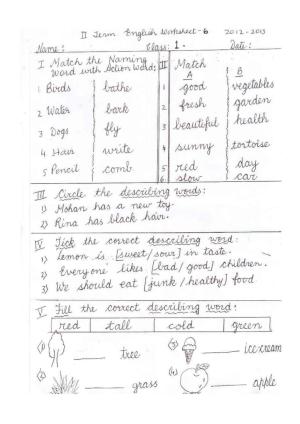 II Term English Worksheet - 6 2012 - 2013
Name : Class : 1 . Date :
I Match the Naming Word with Action Word;
1 Birds bathe
2 Water bark
3 Dogs fly
4 Hair write
5 Pencil comb
II Match
A B
1 good vegetables
2 fresh garden
3 beautiful health
4 sunny tortoise
5 red day
6 slow car
III Circle the describing words :
1) Mohan has a new toy.
2) Rina has black hair.
IV Tick the correct describing word :
1) Lemon is [sweet / sour] in taste.
2) Everyone likes [bad / good] children.
3) We should eat [junk / healthy] food
V Fill the correct describing word :
red tall cold green
(1) ______ tree
(3) ______ icecream
(2) ______ grass
(4) ______ apple